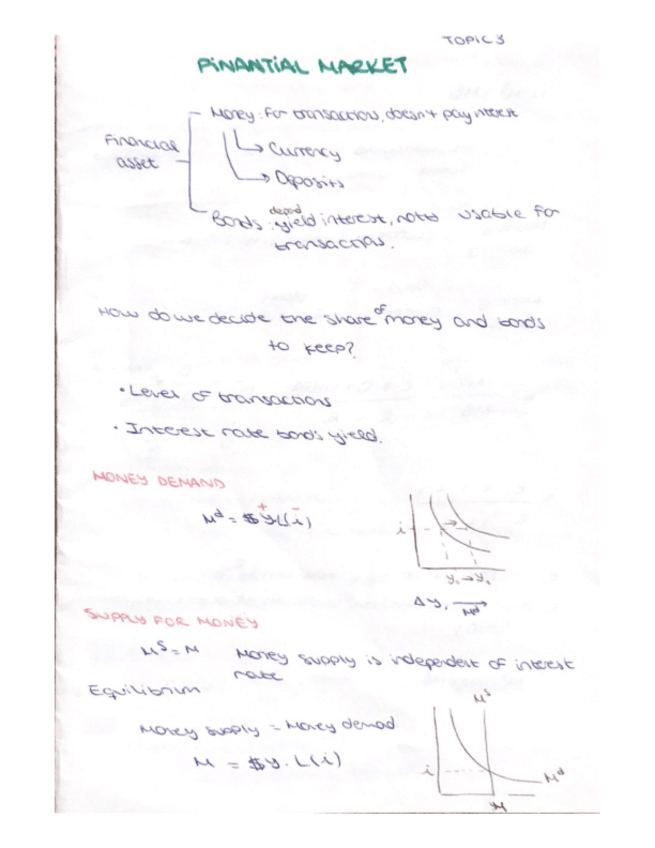 TOPIC 3
FINANTIAL MARKET
Money: for transaction, doesn't pay interest
Financial asset
Currency
Deposits
depod
Bonds: yield interest, not usable for
transactions.
How do we decide the share of money and bonds
to keep?
• Level of transactions
• Interest rate bonds yield.
MONEY DEMAND
+ -
Mᵈ = $Y.L(i)
i
Y₀ → Y₁
ΔY, →
Mᵈ
SUPPLY FOR MONEY
Mˢ = M Money supply is independent of interest
rate
Equilibrium
Mˢ
Money supply = Money demad
M = $Y. L(i)
i
Mᵈ
M